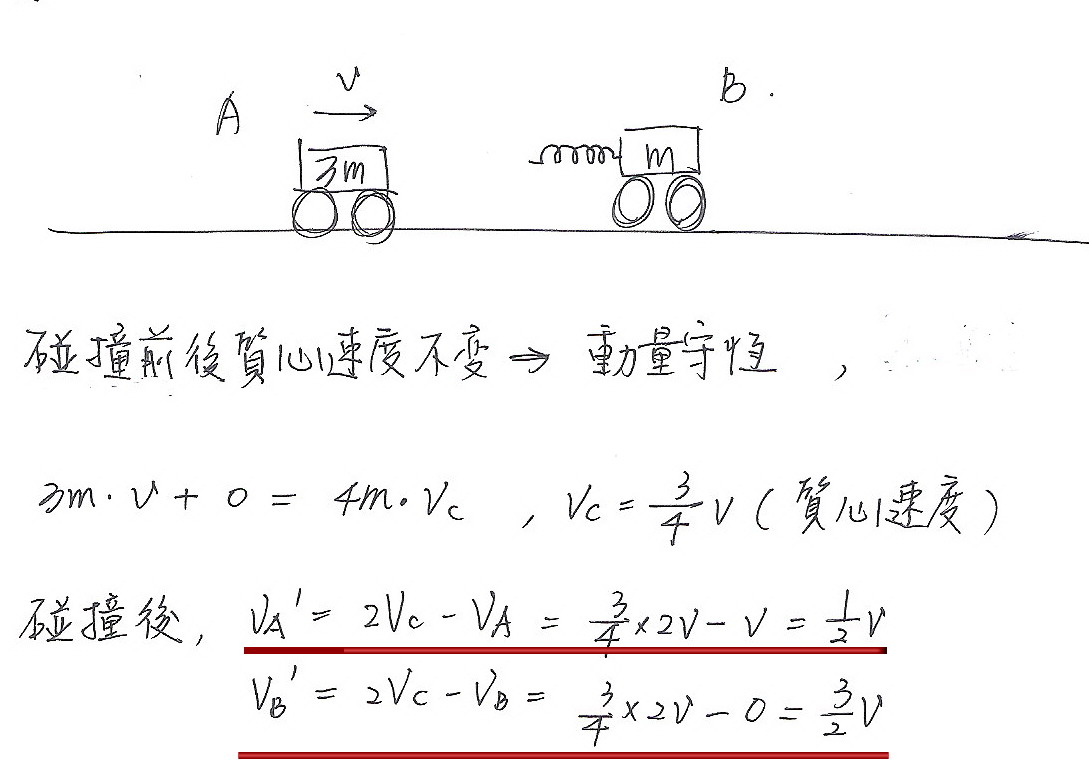 V
A B .
3m m
碰撞前後質心速度不变 ⇒ 動量守恆 ,
3m · V + 0 = 4m · Vc , Vc = 3/4 V ( 質心速度 )
碰撞後, VA' = 2Vc - VA = 3/4 × 2V - V = 1/2 V
VB' = 2Vc - VB = 3/4 × 2V - 0 = 3/2 V